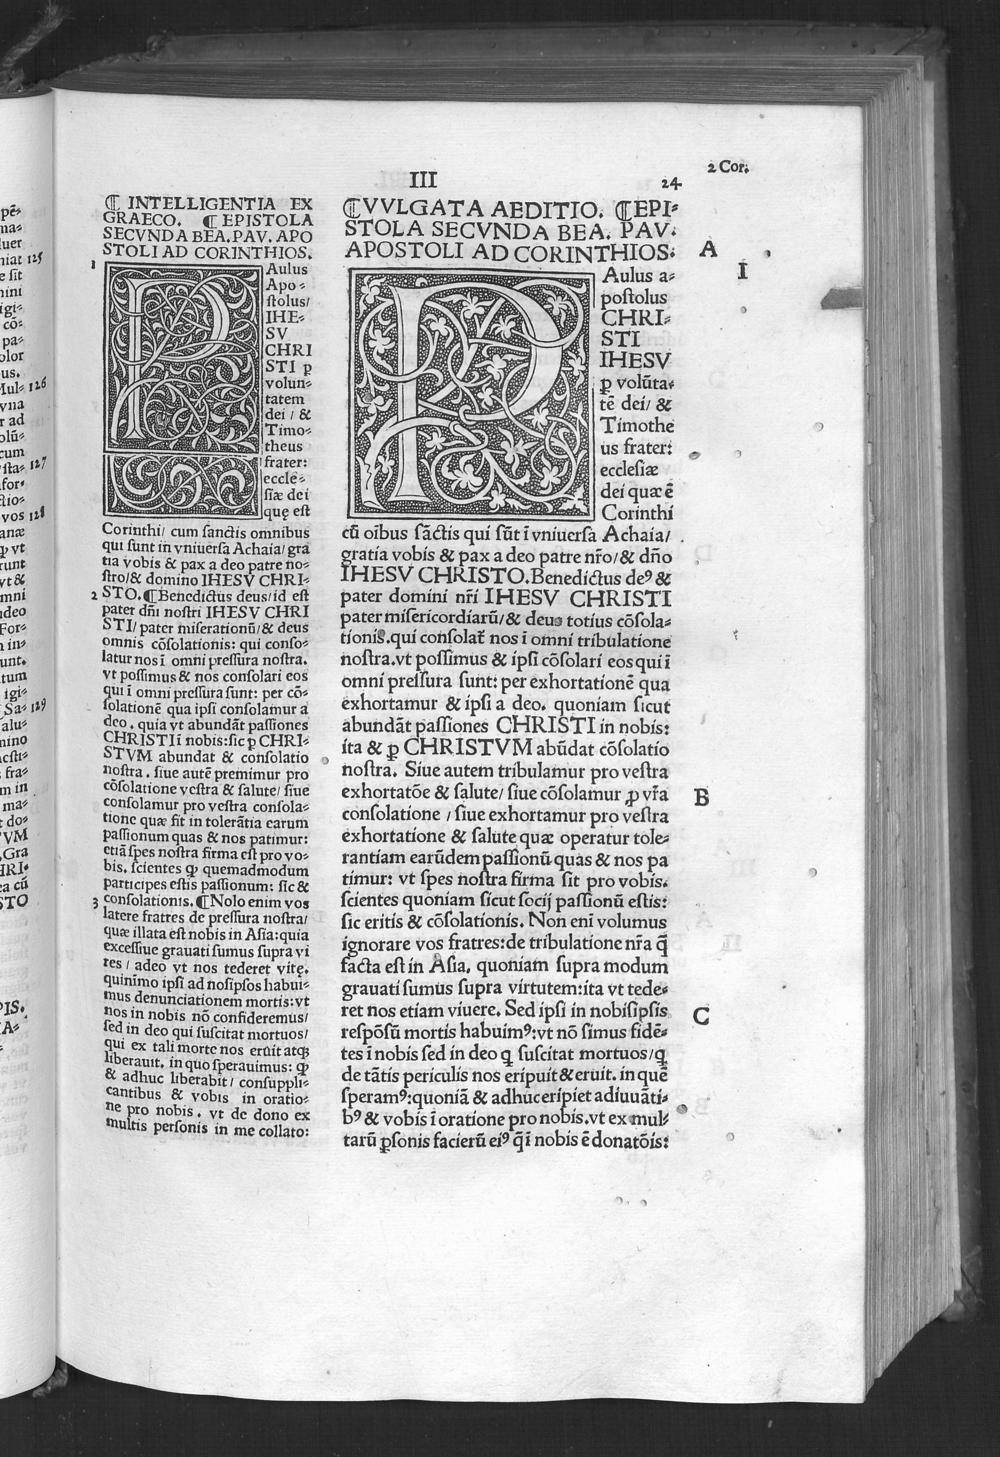 III
24
2 Cor.
¶ INTELLIGENTIA EX
GRAECO. ¶ EPISTOLA
SECVNDA BEA. PAV. APO
STOLI AD CORINTHIOS.
1
Aulus
Apo-
ſtolus/
IHE-
SV
CHRI
STI p
volun-
tatem
dei / &
Timo-
theus
frater:
eccle-
ſiæ dei
quę eſt
Corinthi/ cum ſanctis omnibus
qui ſunt in vniuerſa Achaia/ gra
tia vobis & pax a deo patre no-
ſtro/& domino IHESV CHRI-
2 STO. ¶Benedictus deus/id eſt
pater dñi noſtri IHESV CHRI
STI/ pater miſerationũ/& deus
omnis cõſolationis: qui conſo-
latur nos ĩ omni preſſura noſtra.
vt poſſimus & nos conſolari eos
qui ĩ omni preſſura ſunt: per cõ-
ſolationẽ qua ipſi conſolamur a
deo. quia vt abundãt paſſiones
CHRISTI ĩ nobis:ſic ꝑ CHRI-
STVM abundat & conſolatio
noſtra. ſiue autẽ premimur pro
cõſolatione veſtra & ſalute/ ſiue
conſolamur pro veſtra conſola-
tione quæ fit in tolerãtia earum
paſſionum quas & nos patimur:
etiã ſpes noſtra firma eſt pro vo-
bis. ſcientes ꝙ quemadmodum
participes eſtis paſſionum: ſic &
3 conſolationis. ¶Nolo enim vos
latere fratres de preſſura noſtra/
quæ illata eſt nobis in Aſia:quia
exceſſiue grauati ſumus ſupra vi
res / adeo vt nos tederet vitę.
quinimo ipſi ad noſipſos habui-
mus denunciationem mortis:vt
nos in nobis nõ confideremus/
ſed in deo qui ſuſcitat mortuos/
qui ex tali morte nos eruit atqꝫ
liberauit. in quo ſperauimus: ꝙ
& adhuc liberabit/ conſuppli-
cantibus & vobis in oratio-
ne pro nobis. vt de dono ex
multis perſonis in me collato:
¶VVLGATA AEDITIO. ¶EPI-
STOLA SECVNDA BEA. PAV.
APOSTOLI AD CORINTHIOS.
Aulus a-
poſtolus
CHRI-
STI
IHESV
ꝑ volũta-
tẽ dei/ &
Timothe
us frater:
eccleſiæ
dei quæ ẽ
Corinthi
cũ oĩbus ſãctis qui ſũt ĩ vniuerſa Achaia/
gratia vobis & pax a deo patre nr̃o/& dño
IHESV CHRISTO. Benedictus deꝰ &
pater domini nr̃i IHESV CHRISTI
pater miſericordiarũ/& deus totius cõſola-
tionis.qui conſolat̃ nos ĩ omni tribulatione
noſtra.vt poſſimus & ipſi cõſolari eos qui ĩ
omni preſſura ſunt: per exhortationẽ qua
exhortamur & ipſi a deo. quoniam ſicut
abundãt paſſiones CHRISTI in nobis:
ita & ꝑ CHRISTVM abũdat cõſolatio
noſtra. Siue autem tribulamur pro veſtra
exhortatõe & ſalute/ ſiue cõſolamur ꝓ vr̃a
conſolatione / ſiue exhortamur pro veſtra
exhortatione & ſalute quæ operatur tole-
rantiam earũdem paſſionũ quas & nos pa
timur: vt ſpes noſtra firma ſit pro vobis.
ſcientes quoniam ſicut ſocij paſſionũ eſtis:
ſic eritis & cõſolationis. Non enĩ volumus
ignorare vos fratres:de tribulatione nr̃a q̃
facta eſt in Aſia. quoniam ſupra modum
grauati ſumus ſupra virtutem:ita vt tede-
ret nos etiam viuere. Sed ipſi in nobiſipſis
reſpõſũ mortis habuimꝰ:vt nõ ſimus fidẽ-
tes ĩ nobis ſed in deo q ſuſcitat mortuos/q
de tãtis periculis nos eripuit&eruit. in quẽ
ſperamꝰ:quoniã & adhuc eripiet adiuuãti-
bꝰ & vobis ĩ oratione pro nobis.vt ex mul-
tarũ ꝑſonis facierũ eiꝰ q̃ ĩ nobis ẽ donatõis:
A
I
B
C